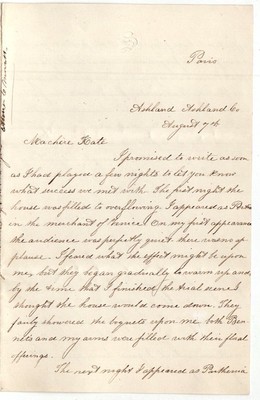 Paris
Ashland Ashland Co
August 7th
Machere Kate
I promised to write as soon
as I had played a few nights to let you know
what success we met with. The first night the
house was filled to overflowing. I appeared as Portia
in the merchant of Venice. On my first appearance
the audience was perfectly quiet there was no ap
plause. I feared what the effect might be upon
me, but they began gradually to warm up and
by the time that I finished the trial scene I
thought the house would come down. They
fairly showered the boquets upon me both
and my arms were filled with their floral
offerings.
The next night I appeared as Parthenia